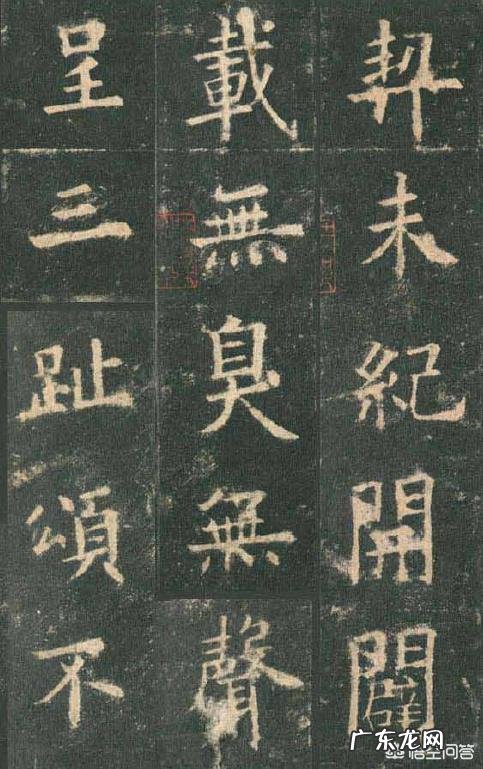 契未紀開闢
載無臭無聲
呈三趾頌不
广东龙网
悟空问答